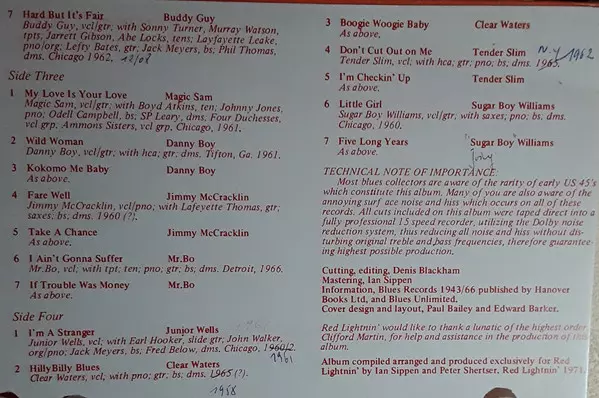 7 Hard But It's Fair Buddy Guy
Buddy Guy, vcl/gtr, with Sonny Turner, Murray Watson,
tpts, Jarrett Gibson, Abe Locks, tens; Layfayette Leake,
pno/org; Lefty Bates, gtr; Jack Meyers, bs; Phil Thomas,
dms. Chicago 1962,
Side Three
1 My Love Is Your Love Magic Sam
Magic Sam, vcl/gtr; with Boyd Atkins, ten; Johnny Jones,
pno; Odell Campbell, bs; SP Leary, dms, Four Duchesses,
vcl grp, Ammons Sisters, vcl grp. Chicago, 1961.
2 Wild Woman Danny Boy
Danny Boy, vcl/gtr; with hca; gtr; dms. Tifton, Ga. 1961.
3 Kokomo Me Baby Danny Boy
As above.
4 Fare Well Jimmy McCracklin
Jimmy McCracklin, vcl/pno; with Lafeyette Thomas, gtr;
saxes; bs; dms. 1960 (?).
5 Take A Chance Jimmy McCracklin
As above.
6 I Ain't Gonna Suffer Mr.Bo
Mr.Bo, vcl; with tpt; ten; pno; gtr; bs; dms. Detroit, 1966.
7 If Trouble Was Money Mr.Bo
As above.
Side Four
1 I'm A Stranger Junior Wells
Junior Wells, vcl; with Earl Hooker, slide gtr; John Walker,
org/pno; Jack Meyers, bs; Fred Below, dms. Chicago, 1960/2.
1961
2 HillyBilly Blues Clear Waters
Clear Waters, vcl; with pno; gtr; bs; dms. 1965 (?).
1958
3 Boogie Woogie Baby Clear Waters
As above.
4 Don't Cut Out on Me Tender Slim N.Y 1962
Tender Slim, vcl; with hca; gtr; pno; bs; dms. 1965.
5 I'm Checkin' Up Tender Slim
As above.
6 Little Girl Sugar Boy Williams
Sugar Boy Williams, vcl/gtr; with saxes; pno; bs; dms.
Chicago, 1960.
7 Five Long Years Sugar Boy Williams
As above.
TECHNICAL NOTE OF IMPORTANCE:
Most blues collectors are aware of the rarity of early US 45's
which constitute this album. Many of you are also aware of the
annoying surf ace noise and hiss which occurs on all of these
records. All cuts included on this album were taped direct into a
fully professional 15 speed recorder, utilizing the Dolby noise
reduction system, thus reducing all noise and hiss without dis-
turbing original treble and bass frequencies, therefore guarantee-
ing highest possible production.
Cutting, editing, Denis Blackham
Mastering, Ian Sippen
Information, Blues Records 1943/66 published by Hanover
Books Ltd, and Blues Unlimited.
Cover design and layout, Paul Bailey and Edward Barker.
Red Lightnin' would like to thank a lunatic of the highest order,
Clifford Martin, for help and assistance in the production of this
album.
Album compiled arranged and produced exclusively for Red
Lightnin' by Ian Sippen and Peter Shertser. Red Lightnin' 1971.